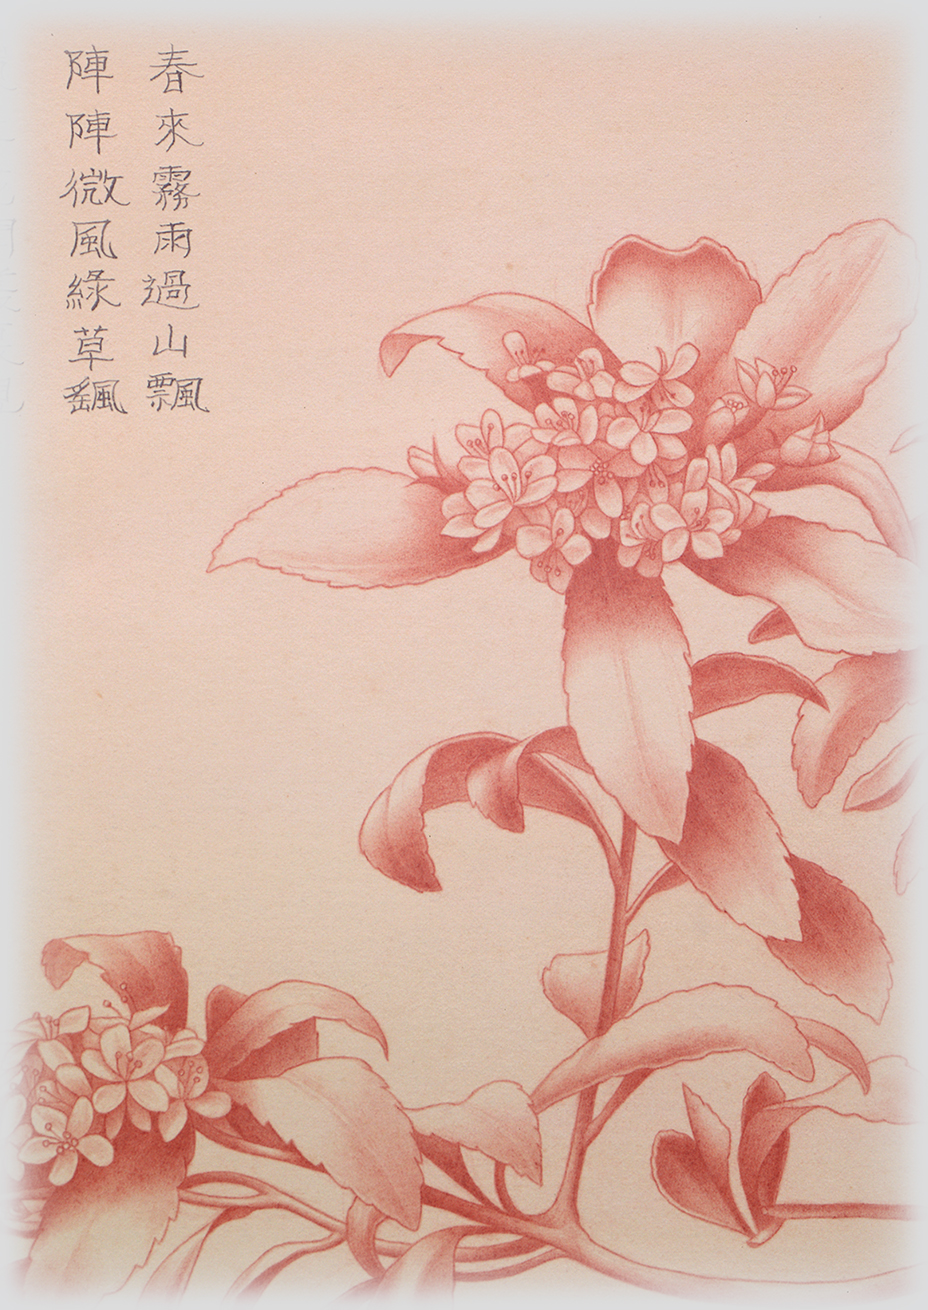 春來霧雨過山飄
陣陣微風綠草飖